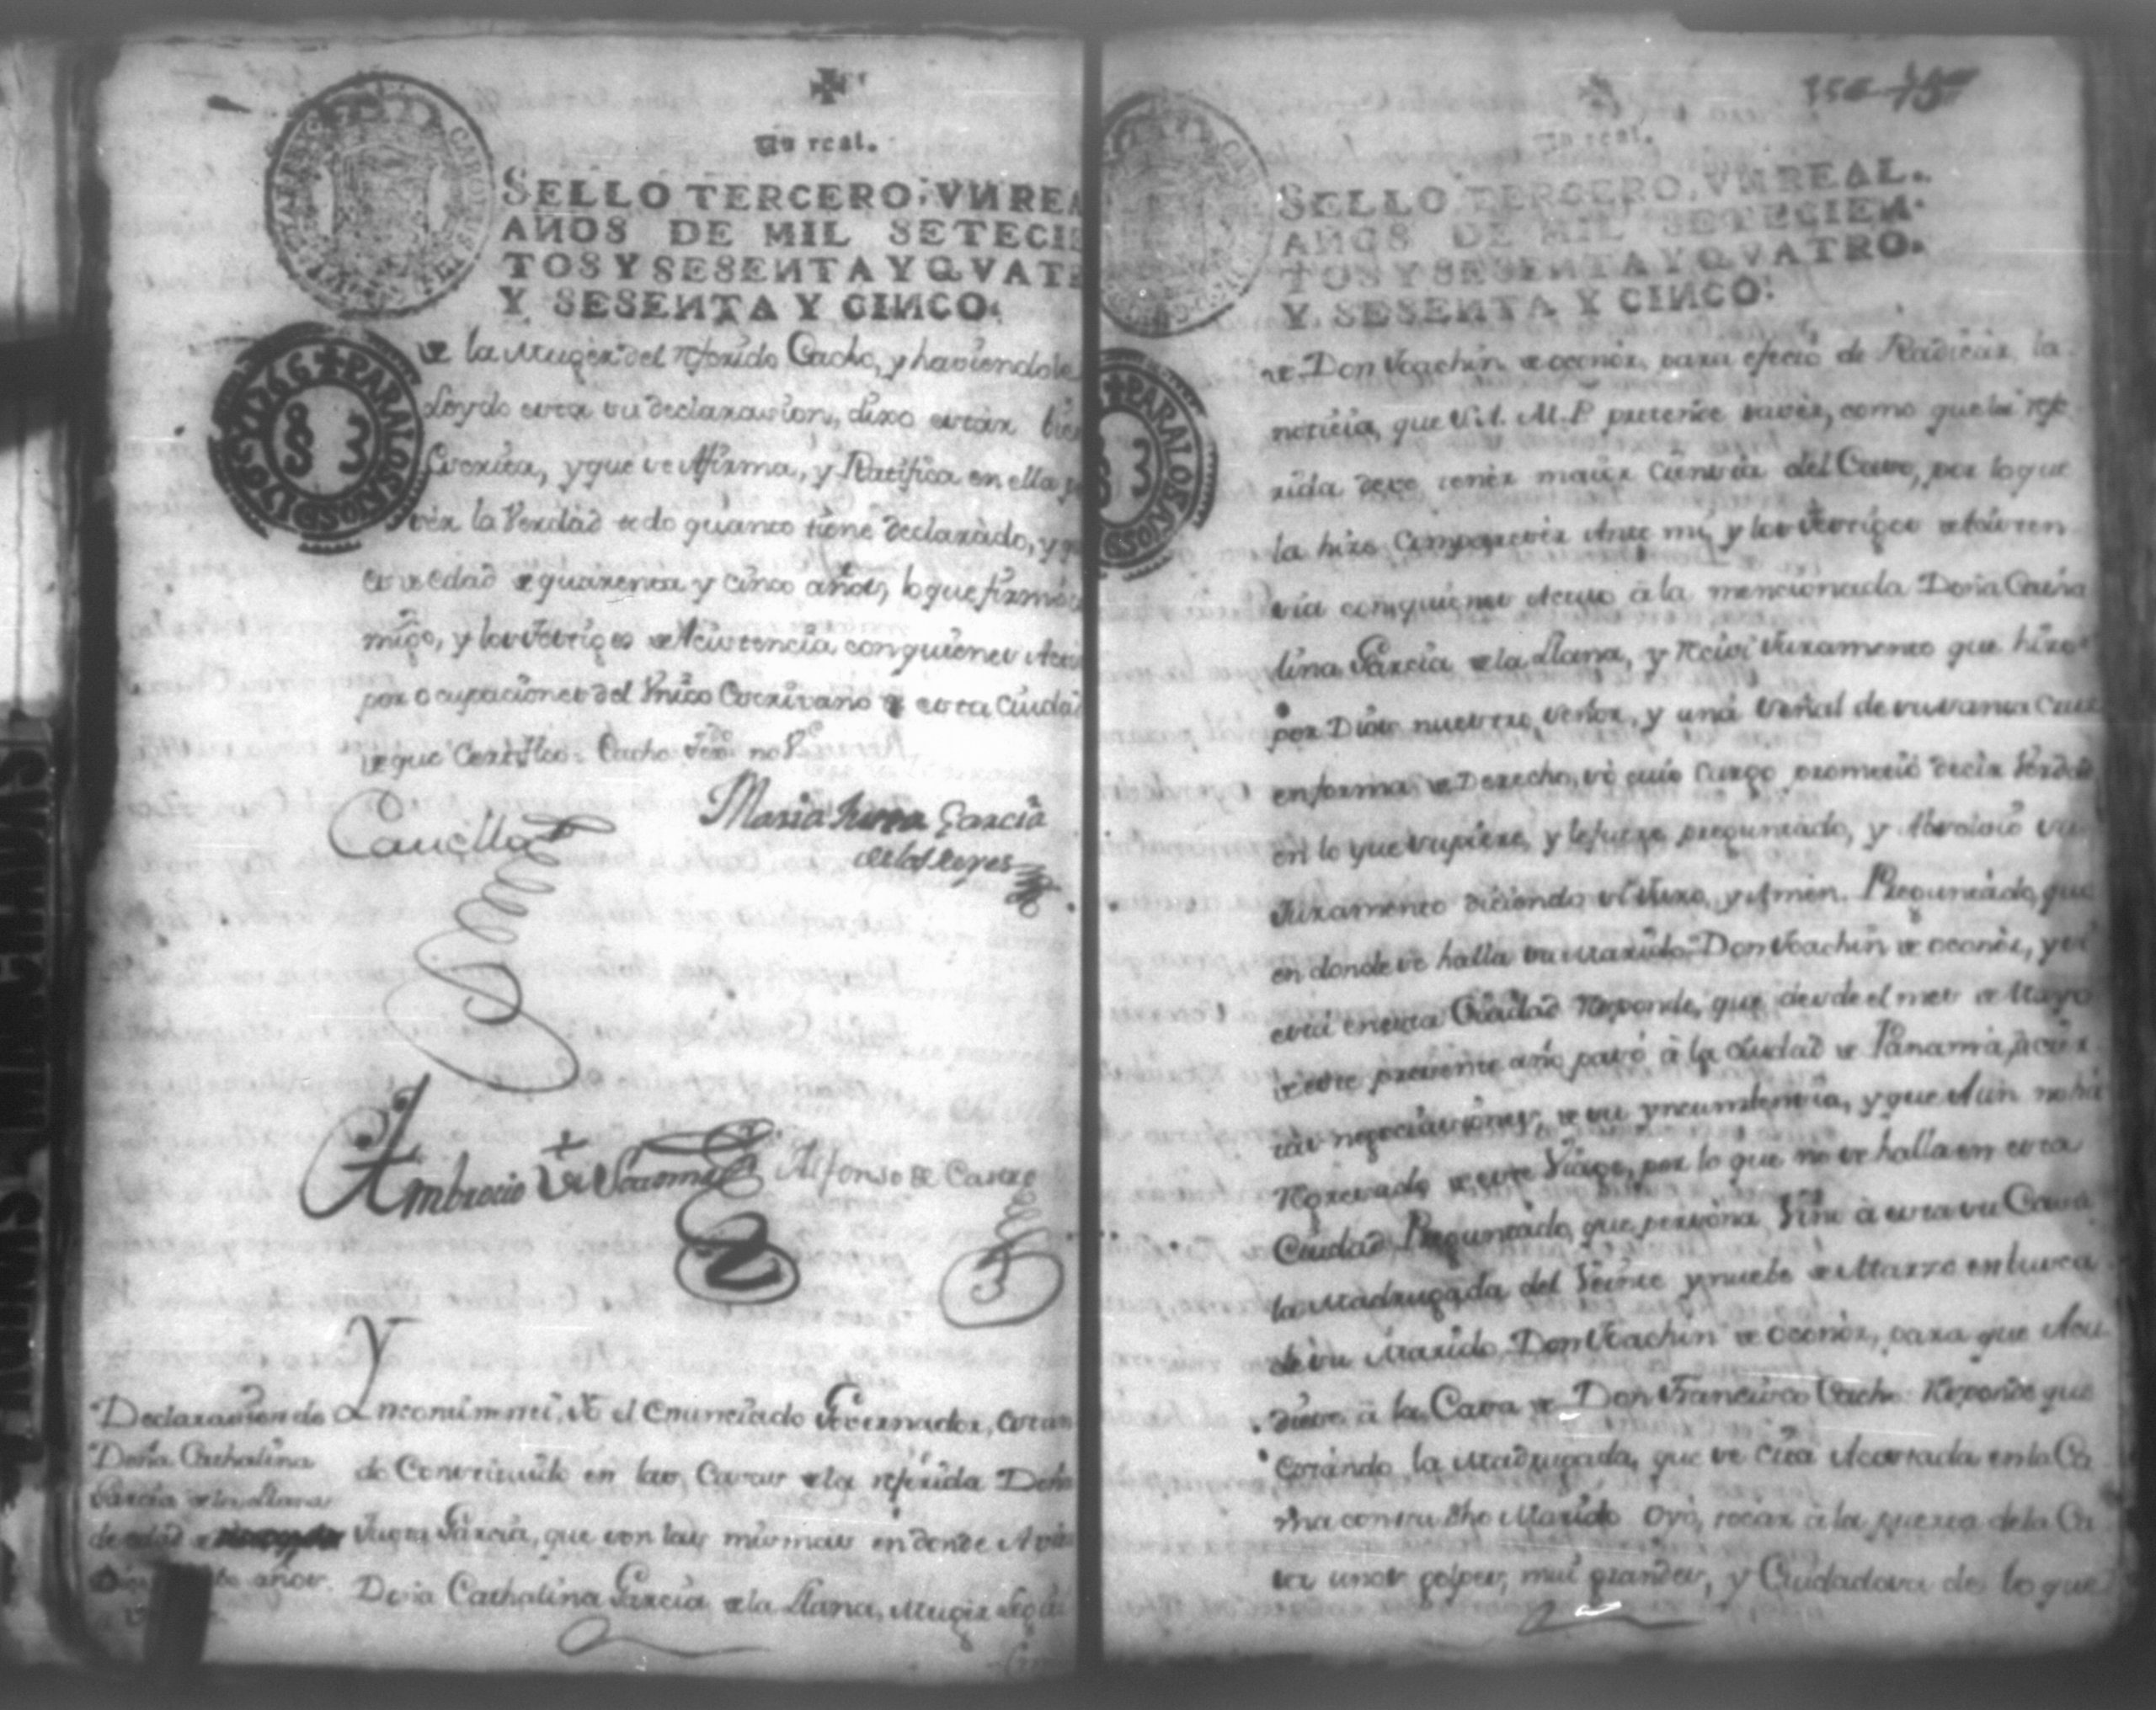 Un real.
SELLO TERCERO, VN REA
AÑOS DE MIL SETECIE
TOS Y SESENTA Y QVAT
Y SESENTA Y CINCO.
PARA LOS AÑOS DE 1765 Y 1766
de la Muger del referido Cacho, y haviendole
Leydo esta su declarasion, dixo estar bien
Escrita, y que se Afirma, y Ratifica en ella p
ser la Verdad todo quanto tiene declarado, y q
es de edad de quarenta y cinco años, lo que firmó
migo, y los testigos de Asistencia con quienes Actu
por ocupaciones del Vnico Escrivano de esta Ciudad
de que Certifico. Cacho no V.e
Casiella
Maria Juana Garcia
de los Reyes
Ambrocio de
Alfonso de Castro
Declarasion de
Doña Cathalina
Garcia de la Llana
de edad de
años.
Yncontinenti, Yo el Enunciado Governador, estan
do Constituido en las Casas de la referida Doña
Juana Garcia, que son las mismas en donde Avi
ta Doña Cathalina Garcia de la Llana, Muger Legi
SELLO TERCERO, VN REAL.
AÑOS DE MIL SETECIEN.
TOS Y SESENTA Y QVATRO.
Y SESENTA Y CINCO.
PARA LOS AÑOS
de Don Joachin de oconòr, para efecto de Radicar la
noticia, que V.A. M.P. pretende saver, como que la refe
rida deve tener maior Cienscia del Caso, por lo que
la hize Comparecer Ante mi, y los testigos de Asisten
sia con quienes Actuo à la mencionada Doña Catha
lina Garcia de la Llana, y recivi Juramento que hizo
por Dios nuestro señor, y una señal de su santa Cruz
en forma de Derecho, so cuio Cargo prometió decir Verdad
en lo que supiere, y le fuere preguntado, y Absolvio su
Juramento diciendo si Juro, y Amen. Preguntado, que
en donde se halla su Marido Don Joachin de oconòr, y si
está en esta Ciudad Responde, que desde el mes de Mayo
de este presente año pasó à la ciudad de Panamá,
negociaciones, de su yncumbencia, y que Aun no há
Regresado de este Viage, por lo que no se halla en esta
Ciudad. Preguntado, que persona Vino à esta su Casa
la Madrugada del Veinte y nuebe de Marzo en busca
de su Marido Don Joachin de oconòr, para que Acu
diese à la Casa de Don Francisco Cacho. Responde que
Estando la Madrugada, que se cita Acostada en la Ca
ma con su dho Marido oyó, tocar à la puerta de la Ca
sa unos golpes, mui grandes, y Cuidadosa de lo que